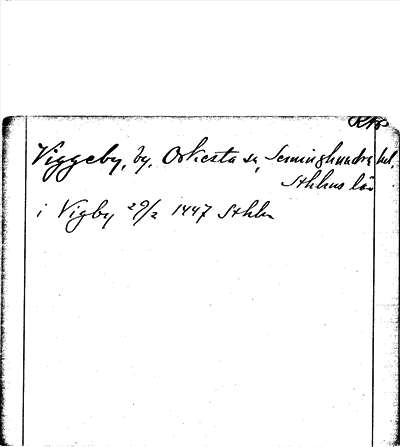 Viggeby, by, Orkesta sn, Seminghundra hd,
Sthlms län
i Vigby 29/2 1447 Sthlm